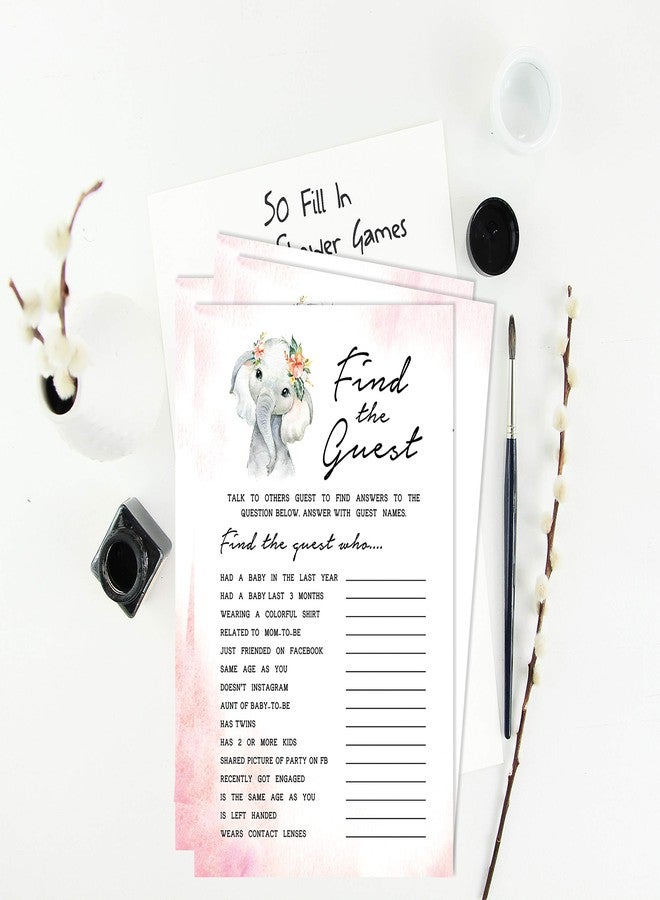 50 Fill In
Shower Games
Find
the
Guest
TALK TO OTHERS GUEST TO FIND ANSWERS TO THE
QUESTION BELOW. ANSWER WITH GUEST NAMES.
Find the guest who....
HAD A BABY IN THE LAST YEAR
HAD A BABY LAST 3 MONTHS
WEARING A COLORFUL SHIRT
RELATED TO MOM-TO-BE
JUST FRIENDED ON FACEBOOK
SAME AGE AS YOU
DOESN'T INSTAGRAM
AUNT OF BABY-TO-BE
HAS TWINS
HAS 2 OR MORE KIDS
SHARED PICTURE OF PARTY ON FB
RECENTLY GOT ENGAGED
IS THE SAME AGE AS YOU
IS LEFT HANDED
WEARS CONTACT LENSES